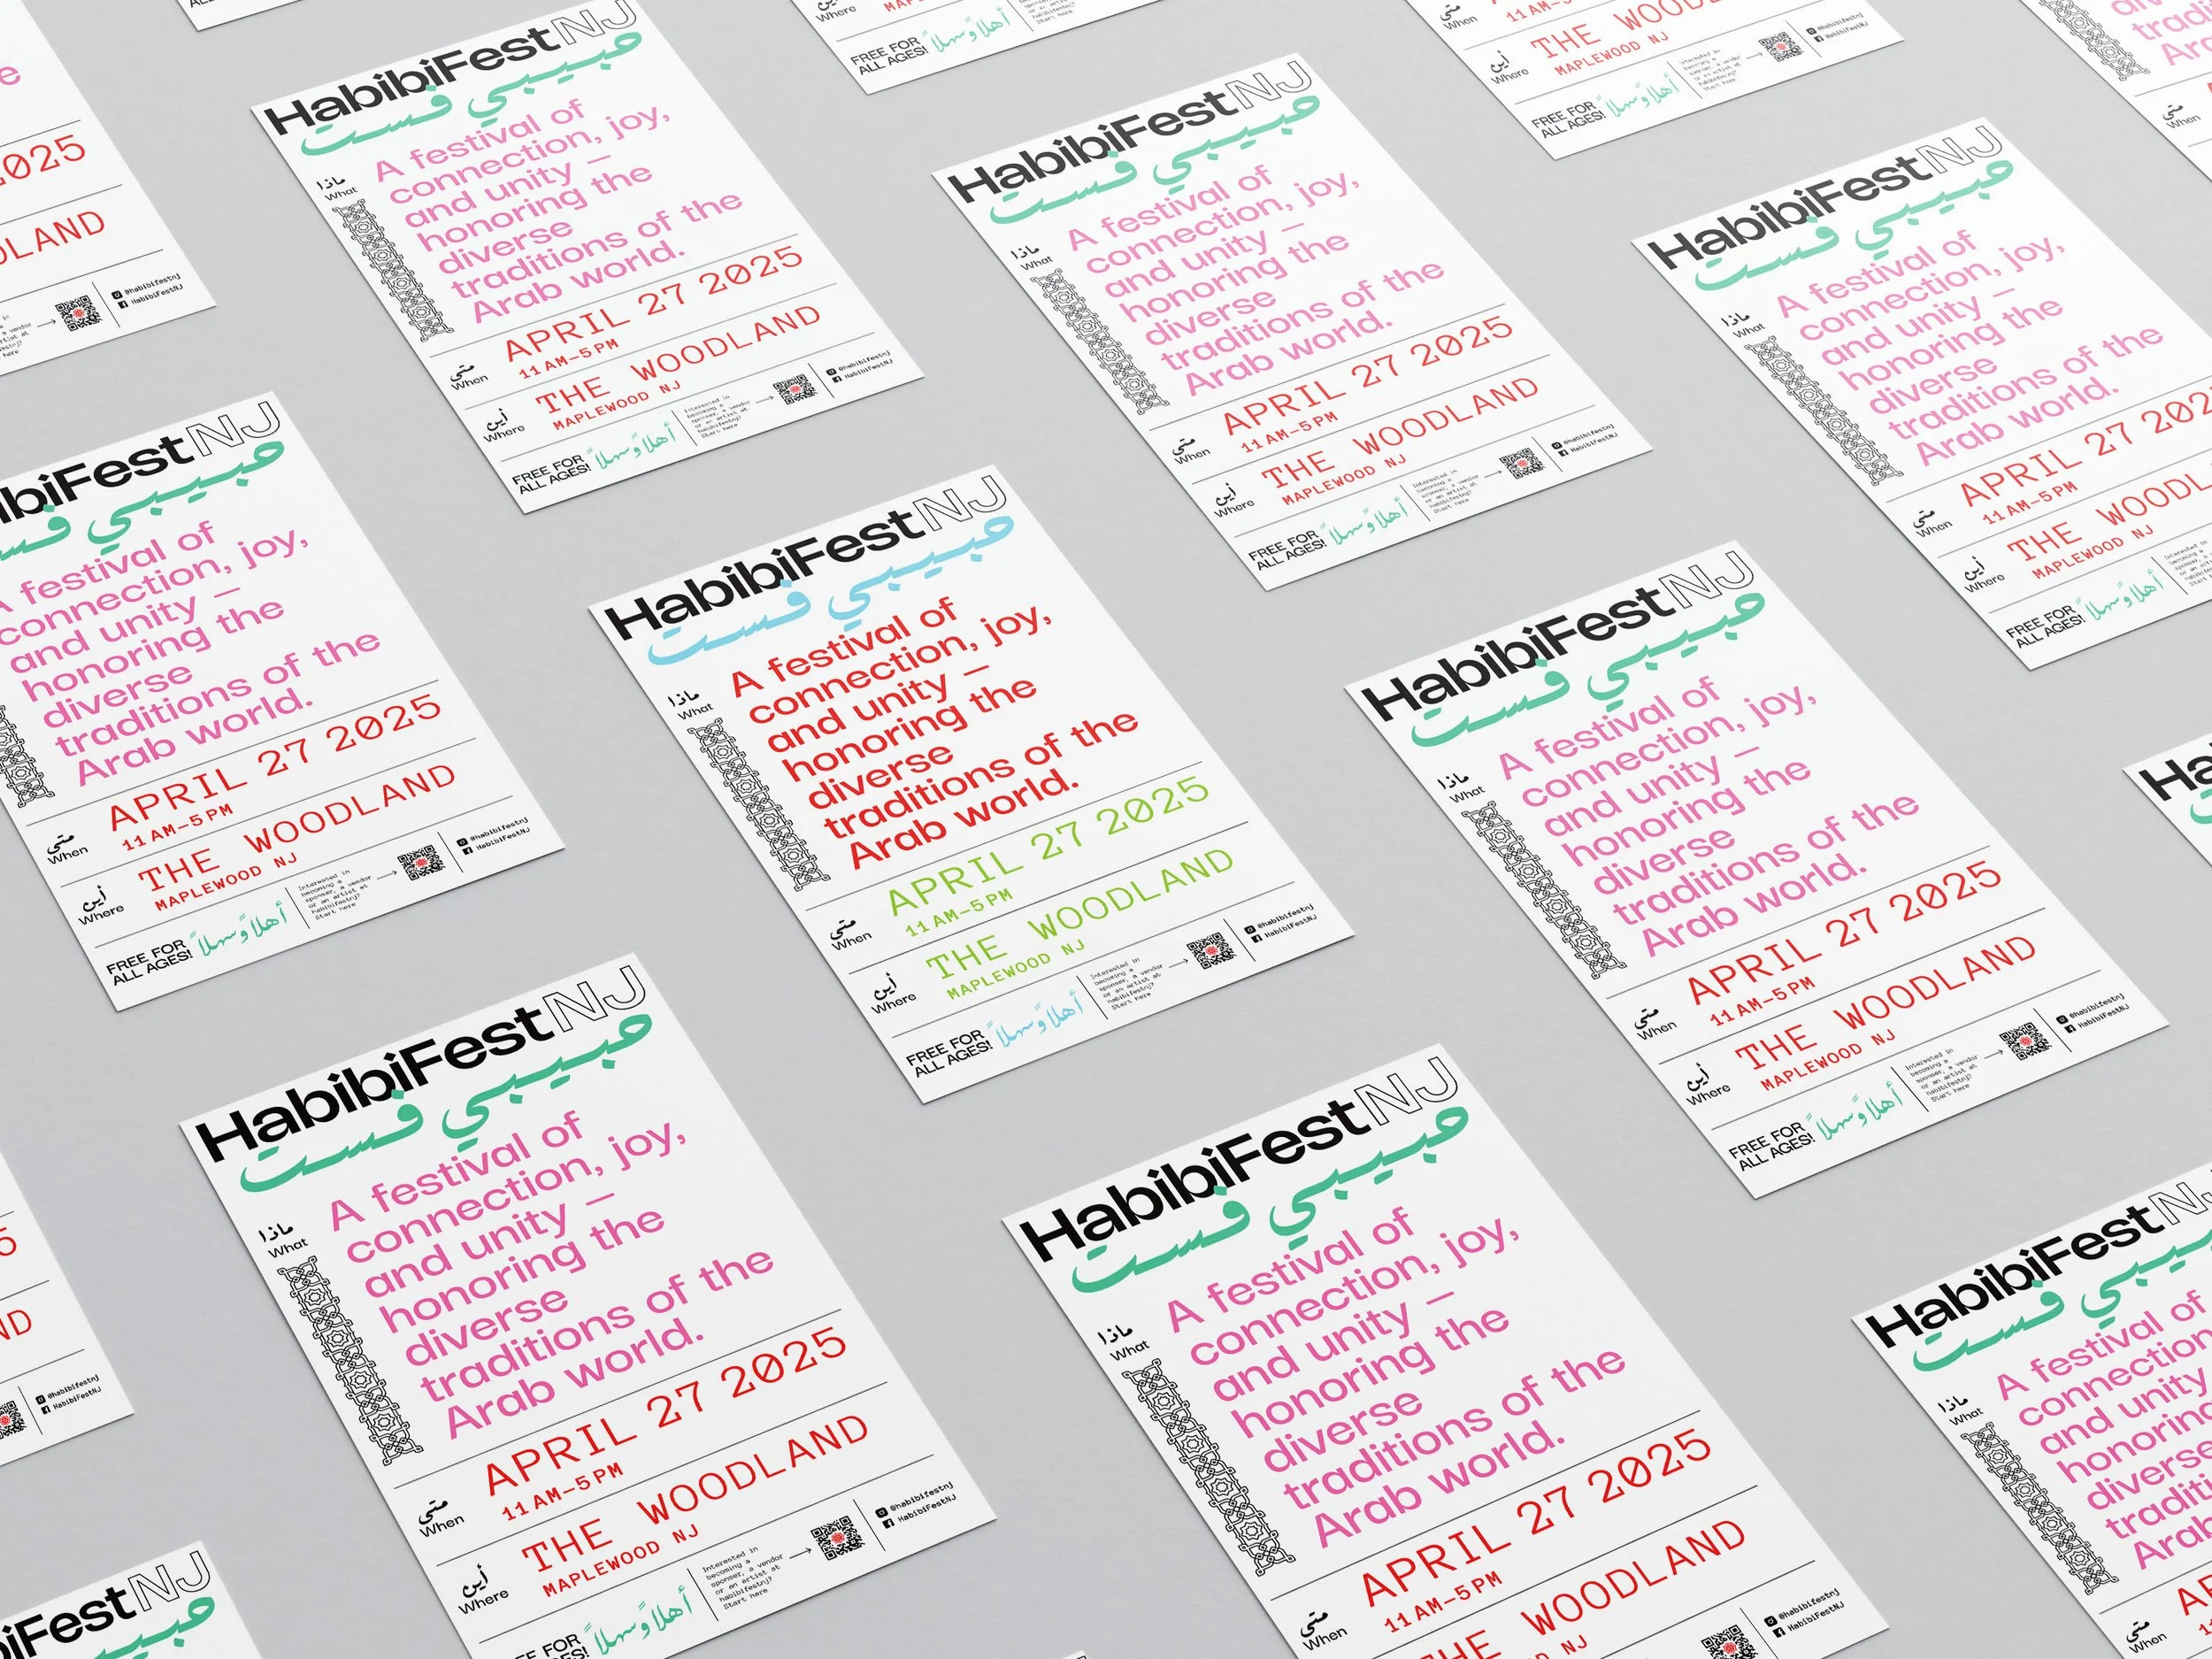 HabibiFest NJ
حبيبي فست
ماذا
What
A festival of
connection, joy,
and unity —
honoring the
diverse
traditions of the
Arab world.
متى
When
APRIL 27 2025
11 AM–5 PM
أين
Where
THE WOODLAND
MAPLEWOOD NJ
FREE FOR
ALL AGES!
أهلاً وسهلاً
Interested in
becoming a
sponser, a vendor
or an artist at
habibifestnj?
Start here
@habibifestnj
HabibiFestNJ